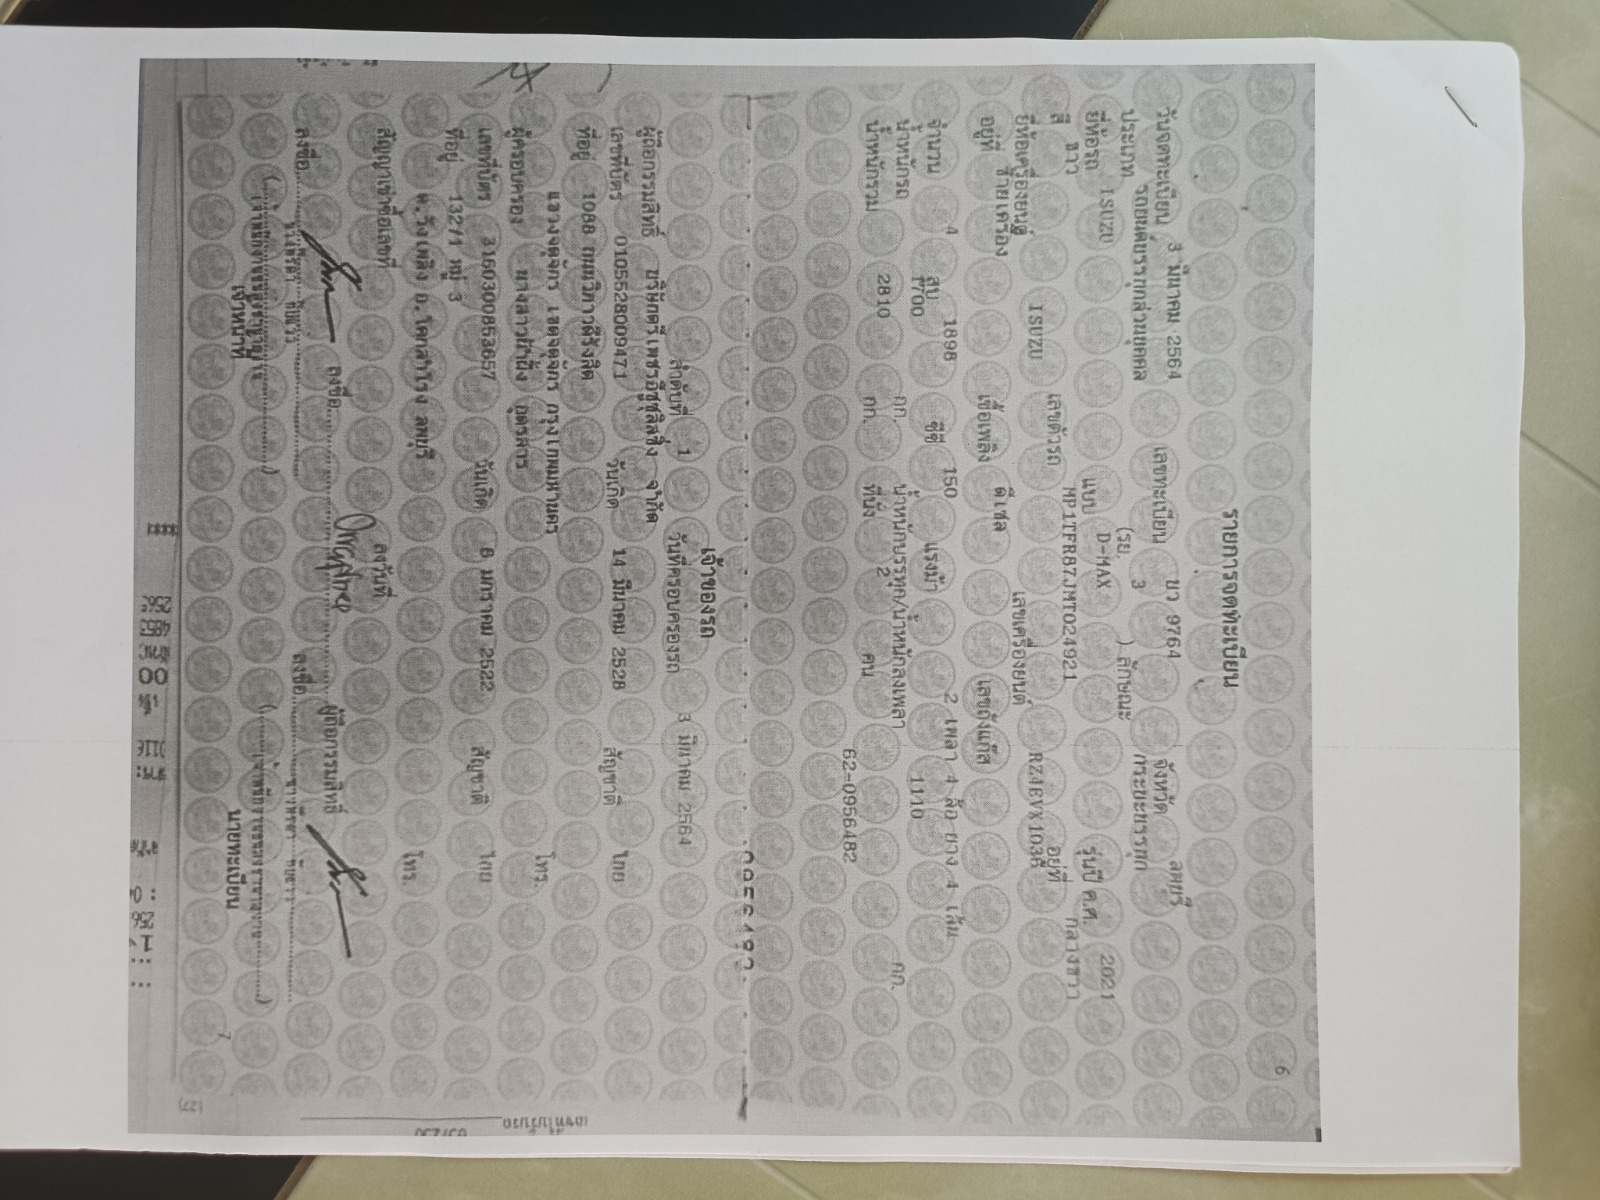 6
รายการจดทะเบียน
วันจดทะเบียน 3 มีนาคม 2564 เลขทะเบียน บว 9764 จังหวัด ลพบุรี
ประเภท รถยนต์บรรทุกส่วนบุคคล (รย. 3 ) ลักษณะ กระบะบรรทุก
ยี่ห้อรถ ISUZU แบบ D-MAX รุ่นปี ค.ศ. 2021
สี ขาว เลขตัวรถ MP1TFR87JMT024921 อยู่ที่ กลางขวา
ยี่ห้อเครื่องยนต์ ISUZU เลขเครื่องยนต์ RZ4EVX1036
อยู่ที่ ซ้ายเครื่อง เชื้อเพลิง ดีเซล เลขถังแก๊ส
จำนวน 4 สูบ 1898 ซีซี 150 แรงม้า 2 เพลา 4 ล้อ ยาง 4 เส้น
น้ำหนักรถ 1700 กก. น้ำหนักบรรทุก/น้ำหนักลงเพลา 1110 กก.
น้ำหนักรวม 2810 กก. ที่นั่ง 2 คน
62-0956482
เจ้าของรถ
ลำดับที่ 1 วันที่ครอบครองรถ 3 มีนาคม 2564
ผู้ถือกรรมสิทธิ์ บริษัทตรีเพชรอีซูซุลิสซิ่ง จำกัด
เลขที่บัตร 0105528009471 วันเกิด 14 มีนาคม 2528 สัญชาติ ไทย
ที่อยู่ 1088 ถนนวิภาวดีรังสิต
แขวงจตุจักร เขตจตุจักร กรุงเทพมหานคร โทร.
ผู้ครอบครอง นางสาวน้ำผึ้ง
เลขที่บัตร 3160300853657 วันเกิด 8 มกราคม 2522 สัญชาติ ไทย
ที่อยู่ 132/1 หมู่ 3
ต.วังเพลิง อ.โคกสำโรง ลพบุรี โทร.
สัญญาเช่าซื้อเลขที่ ลงวันที่
ลงชื่อ ผู้ถือกรรมสิทธิ์
ลงชื่อ ลงชื่อ
เจ้าหน้าที่ นายทะเบียน
7